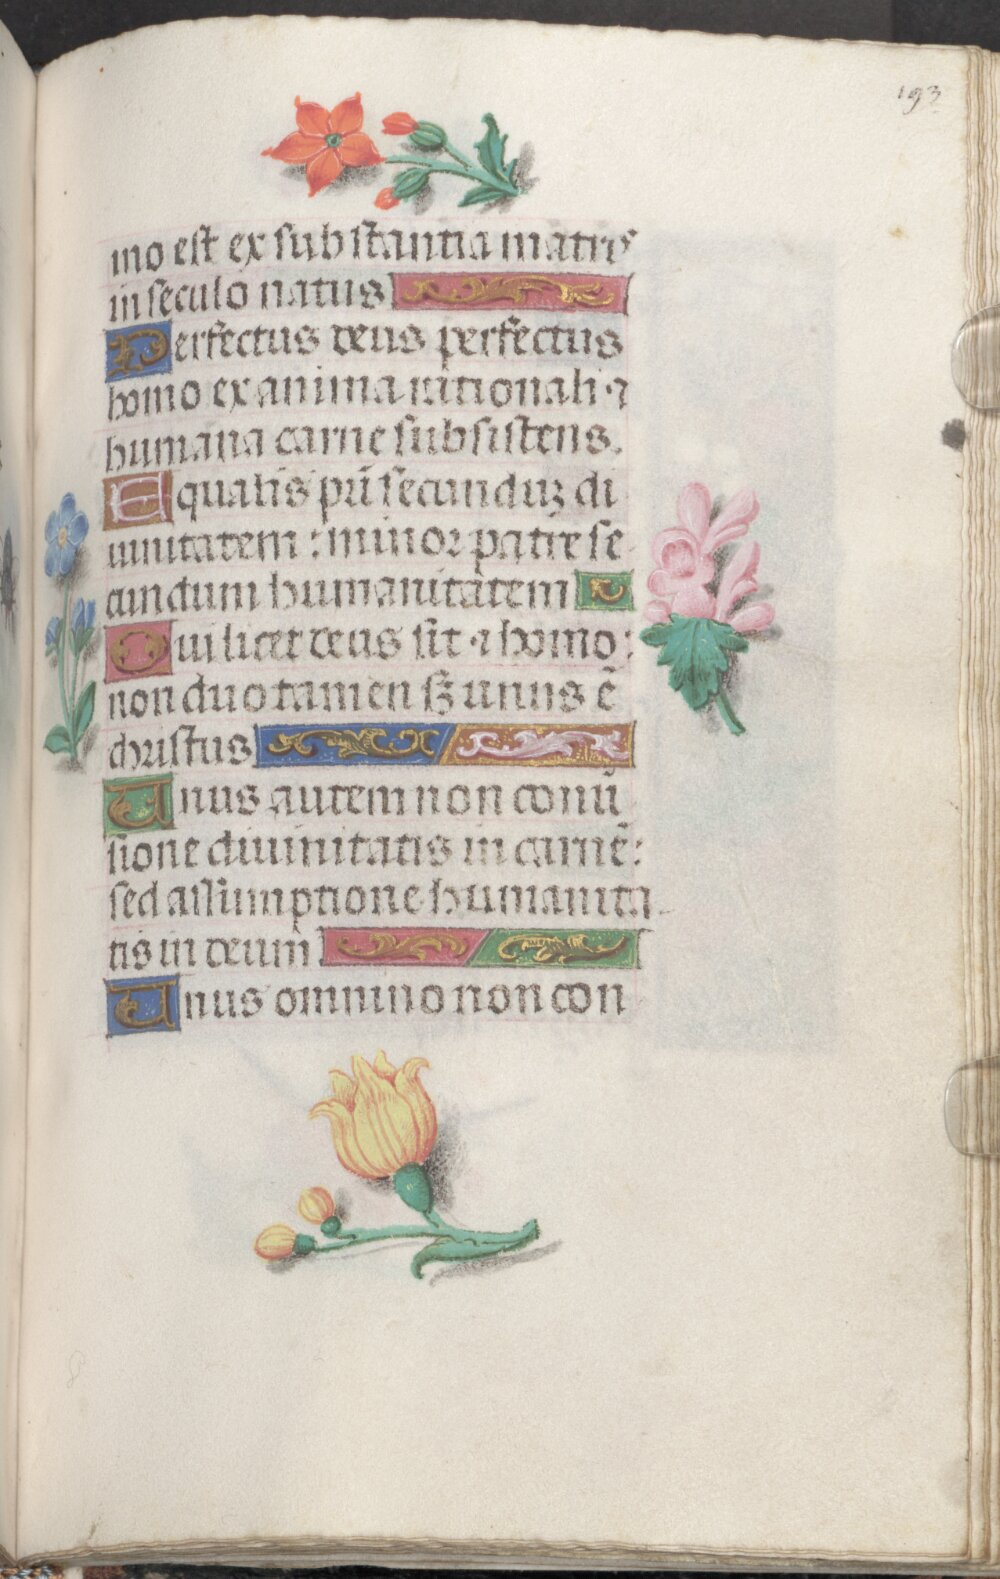 193
mo est ex substantia matris
in seculo natus
Perfectus deus perfectus
homo ex anima rationali ⁊
humana carne subsistens.
Equalis pr̄i secunduꝫ di
uinitatem : minor patre se
cundum humanitatem
Qui licet deus sit ⁊ homo :
non duo tamen sꝫ unus ē
christus
Unus autem non conu̅
sione diuinitatis in carnē :
sed assumptione humanita
tis in deum
Unus omnino non con